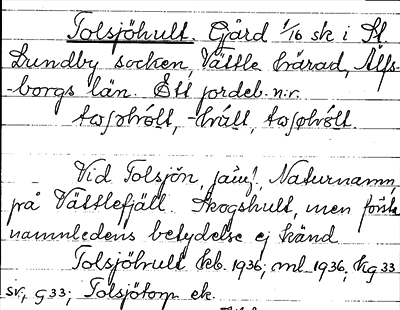 Tolsjöhult. Gård 1/16 sk i St
Lundby socken, Vättle härad, Älfs-
-borgs län. Ett jordeb.n:r.
Vid Tolsjön, jämf. Naturnamn,
på Vättlefjäll. Skogshult, men första
namnledens betydelse ej känd
Tolsjöhult kb. 1936; ml 1936, hg 33
sv, g 33; Tolsjötorp ek.